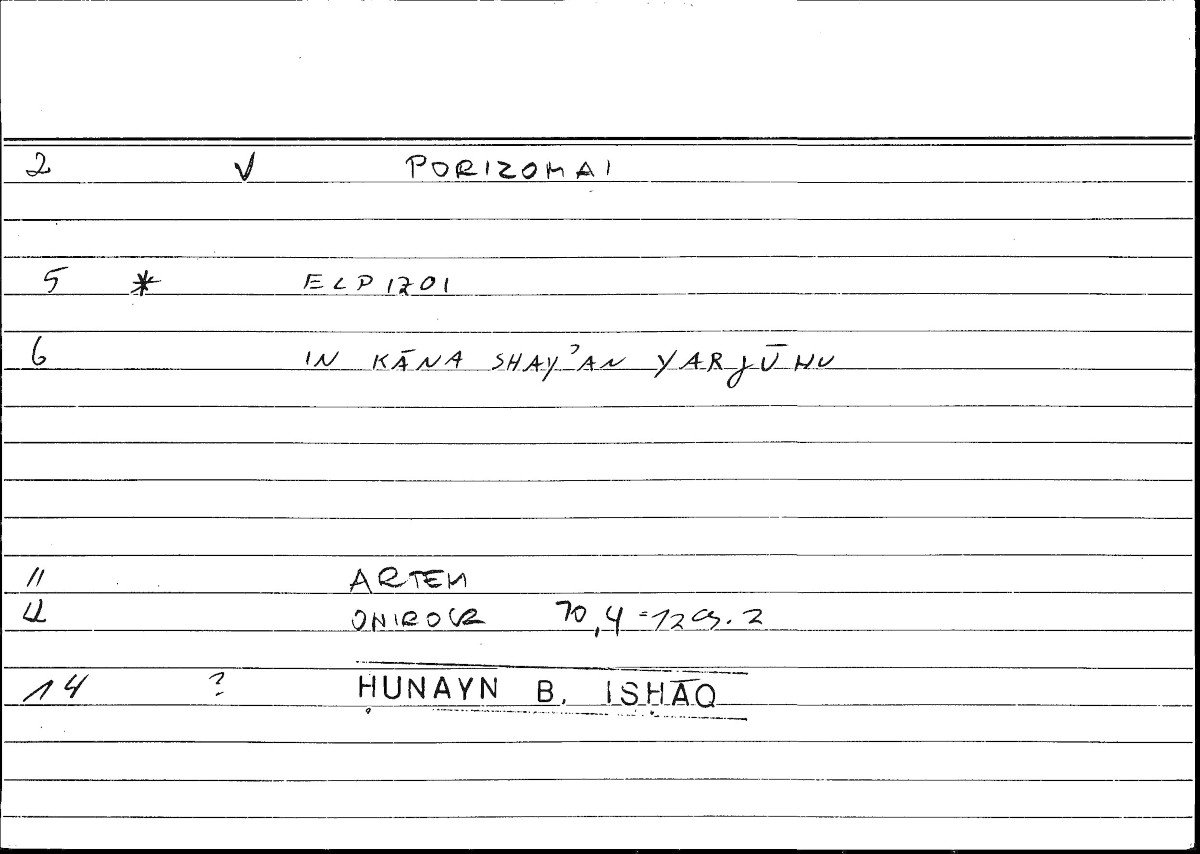 2 V PORIZOMAI
5 * ELPIZOI
6 IN KĀNA SHAYʾAN YARJŪHU
11 ARTEM
12 ONIROCR 70,4 = 129.2
14 ? ḤUNAYN B. ISḤĀQ